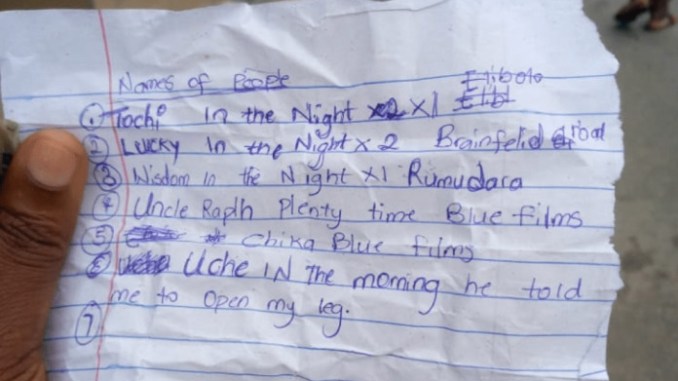 Names of People
Etiboto
① Tochi In the Night x2 x1
② Lucky In the Night x 2 Brainfelid road
③ Wisdom in the Night x1 Rumudara
④ Uncle Raplh Plenty time Blue films
⑤ Chika Blue films
⑥ Uche IN The morning he told
me to open my leg.
⑦